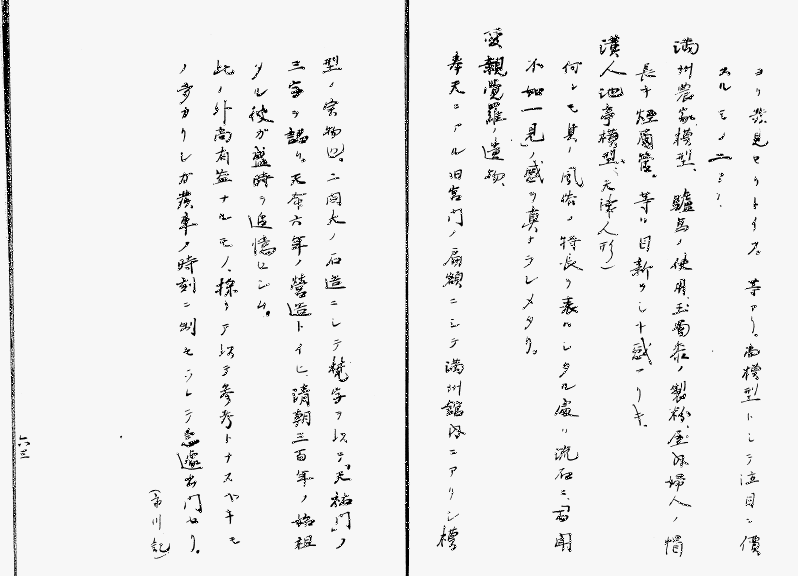 ヨリ発見セリトイフ。等アリ。尚模型トシテ注目ニ價
スルモノニハ、
満州農家模型、驢馬ノ使用、玉蜀黍ノ製粉、屋内婦人ノ
長キ煙管、等ハ目新ラシト感ゼリキ。
漢人池亭模型、(人形)
何レモ其ノ風俗ノ特長ヲ表ハシタル處ハ流石ニ百聞
不如一見ノ感ヲ真ナラシメタリ。
愛親覚羅ノ遺物、
奉天ニアル旧宮門ノ扁額ニシテ満州舘内ニアリシ模
型ノ実物也。二間大ノ石造ニシテ梵字ヲ以テ「天祐門」ノ
三字ヲ謁ル。天命六年ノ營造トイヒ、清朝三百年ノ始祖
タル彼ガ盛時ヲ追憶セシム。
此ノ外尚有益ナルモノ、採リテ以テ参考トナスベキモ
ノ多カリシガ発車ノ時刻ニ制セラレテ急遽出門セリ。
(市川記)
六三